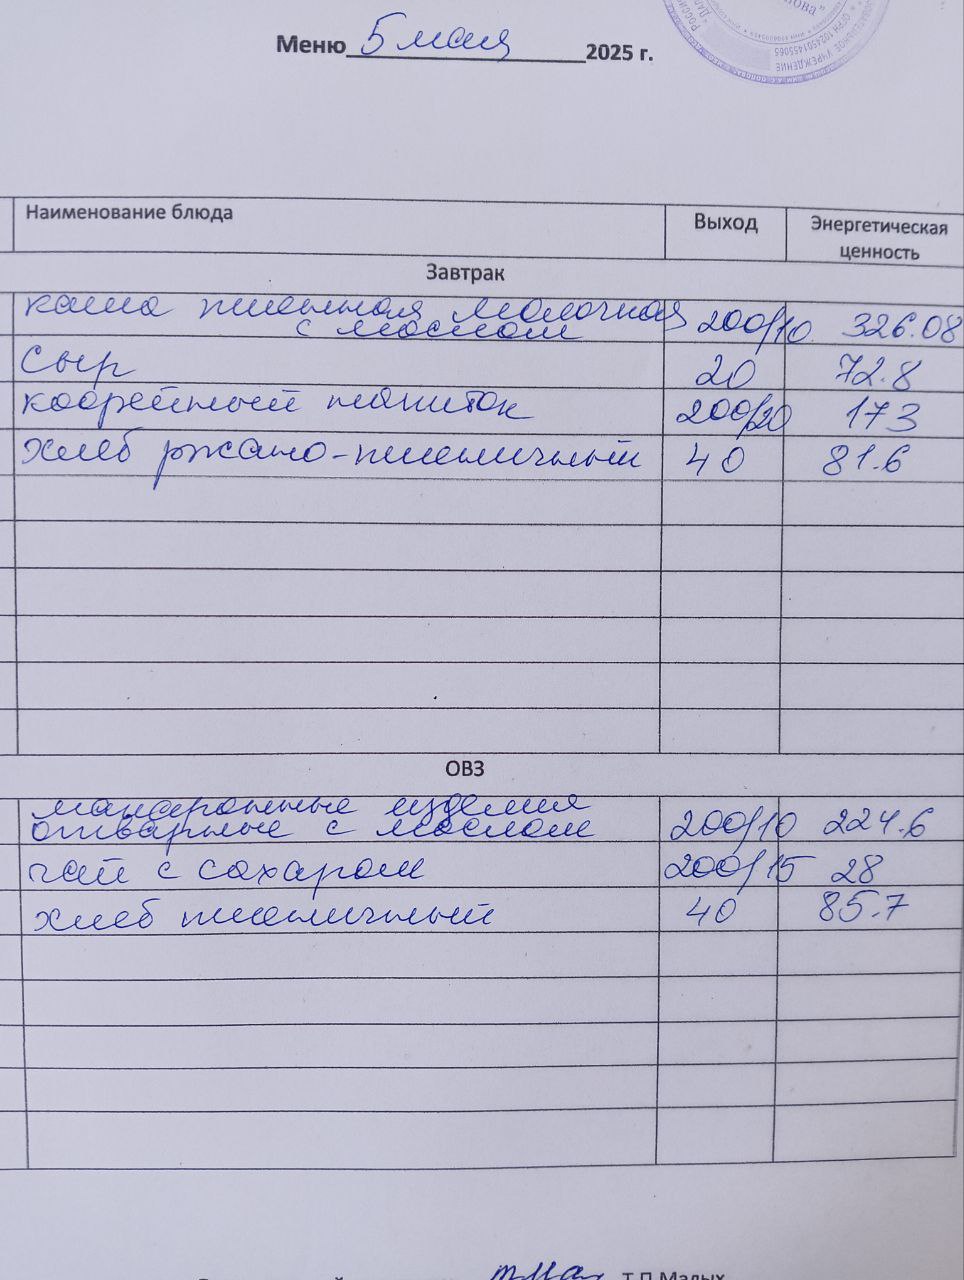 Меню 5 мая 2025 г.
Наименование блюда Выход Энергетическая
ценность
Завтрак
каша пшенная молочная
с маслом 200/10 326.08
сыр 20 72.8
кофейный напиток 200/20 173
хлеб ржано-пшеничный 40 81.6
ОВЗ
макаронные изделия
отварные с маслом 200/10 224.6
чай с сахаром 200/15 28
хлеб пшеничный 40 85.7
Т.П.Малых